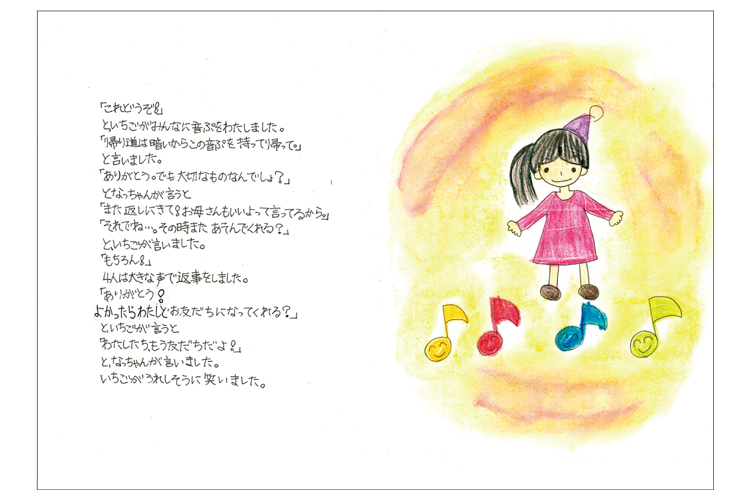 「これどうぞ!」
と、いちごがみんなに音ぷをわたしました。
「帰り道は暗いからこの音ぷを持って帰って。」
と言いました。
「ありがとう。でも大切なものなんでしょ？」
となっちゃんが言うと
「また返しにきて!お母さんもいいよって言ってるから。」
「それでね…。その時またあそんでくれる？」
と、いちごが言いました。
「もちろん!」
4人は大きな声で返事をしました。
「ありがとう!
よかったらわたしとお友だちになってくれる？」
と、いちごが言うと
「わたしたち、もう友だちだよ!」
と、なっちゃんが言いました。
いちごがうれしそうに笑いました。